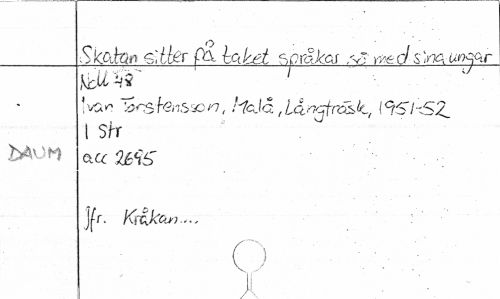 Skatan sitter på taket språkar så med sina ungar
NLL 48
Ivar Torstensson, Malå, Långträsk, 1951-52
1 Str
DAUM acc 2695
Jfr. Kråkan....